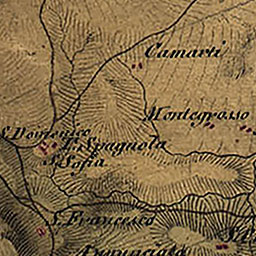 Camarti
Montegrosso
S. Domenico
T. Spagnola
S. Sofia
S. Francesco
Annunciata